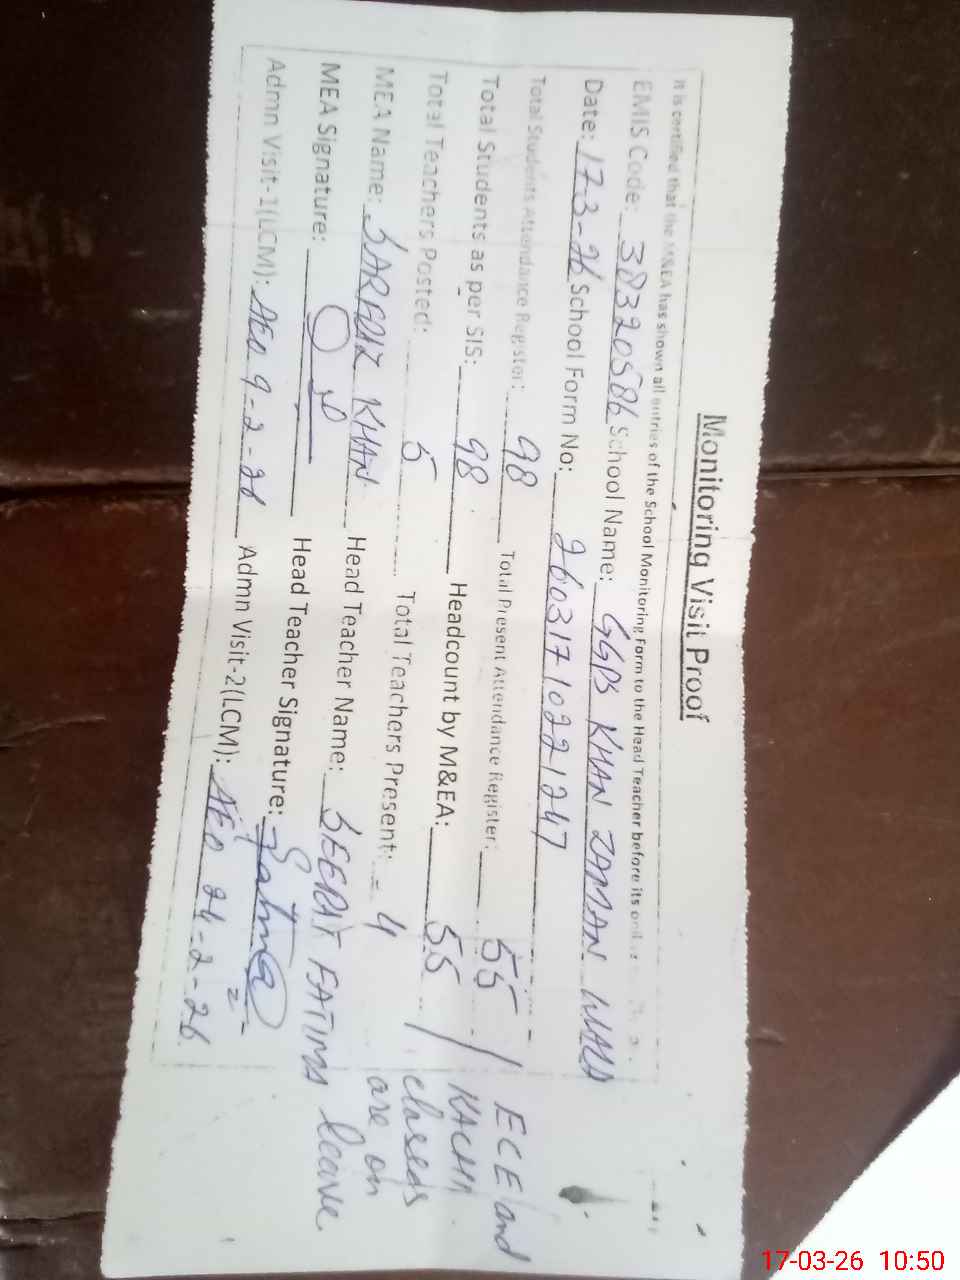 Monitoring Visit Proof
It is certified that the M&EA has shown all entries of the School Monitoring Form to the Head Teacher before its
EMIS Code: 38320586 School Name: GGPS KHAN ZAMAN WALA
Date: 17-3-26 School Form No: 26031710221247
Total Students Attendance Register: 98 Total Present Attendance Register: 55 / ECE and
Total Students as per SIS: 98 Headcount by M&EA: 55 / KACHI
Total Teachers Posted: 5 Total Teachers Present: 4 classes
MEA Name: SARFRAZ KHAN Head Teacher Name: SEERAT FATIMA are on
MEA Signature: Head Teacher Signature: Fatima leave
Admn Visit-1(LCM): AEO 9-2-26 Admn Visit-2(LCM): AEO 24-2-26
17-03-26 10:50